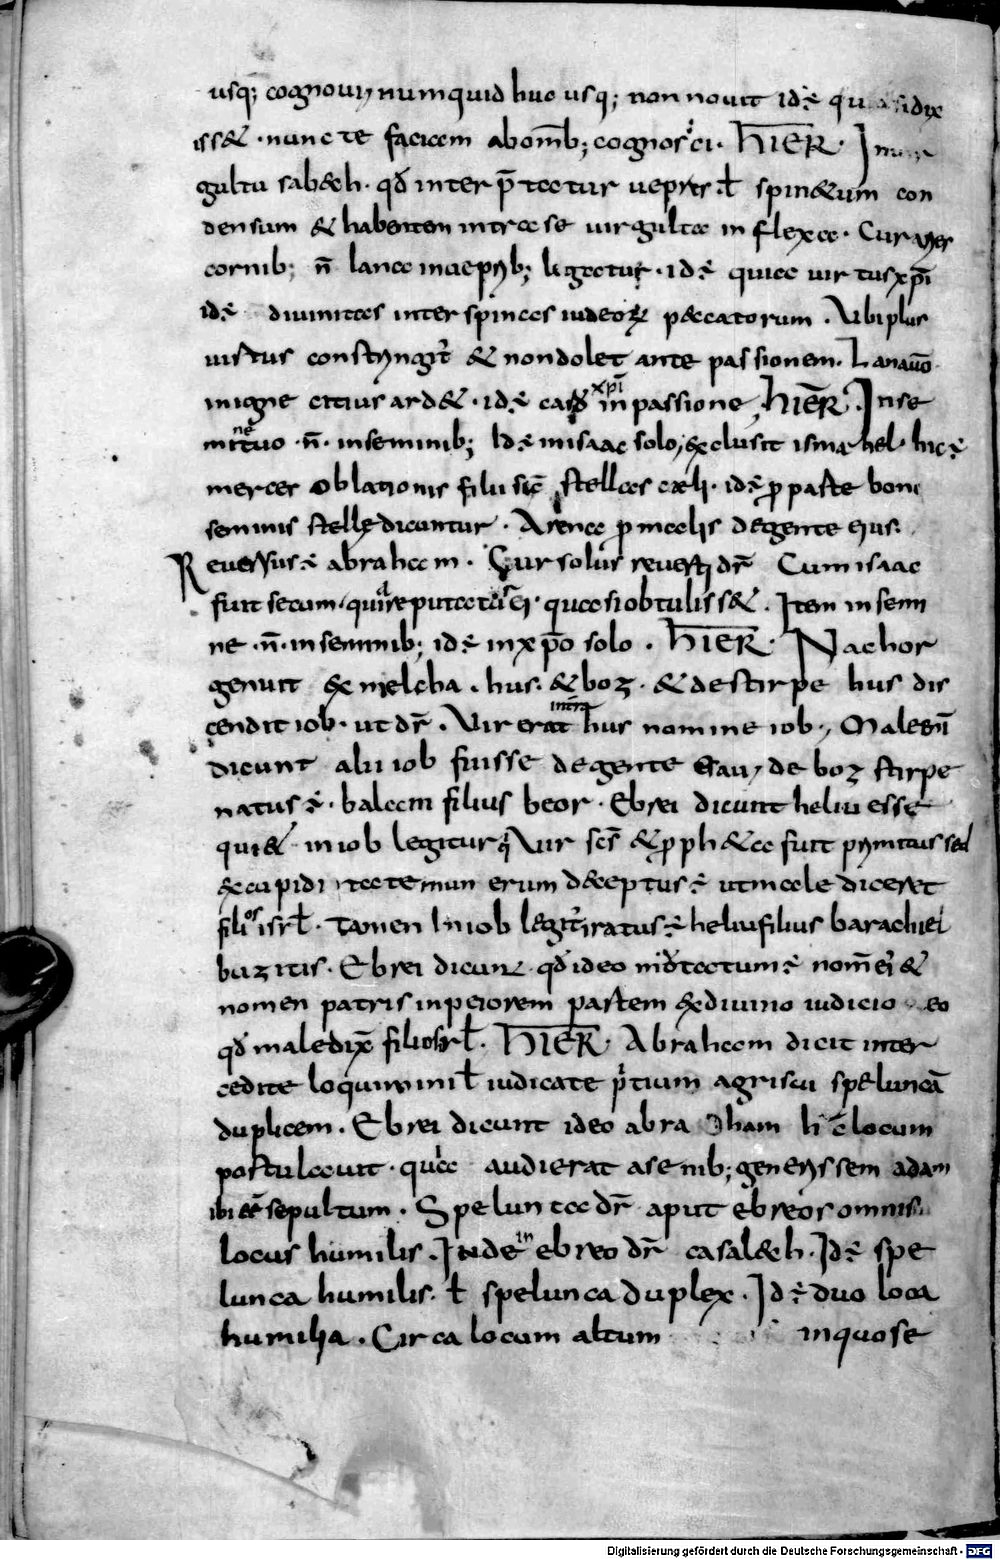 usq; cognoui numquid huc usq; non nouit id ÷ qu
iss& · nunc te faciam abom̄b; cognosci · HIER̄ ·
gultu sab&h · qđ inter p̄tatur uepres ł spin&um con
densum & habentem intra se uirgulta in flexa · Cur aries
cornib; n̄ lana in uepribꝫ legatur · id ÷ quia uirtus xp̄i
id ÷ diuinitas inter spinas iudeoꝝ p&catorum · Vbi plus
uirtus constringit̄ & non dolet ante passionem · Lana ūo
in igne citius ard& · id ÷ caro xp̄i in passione, HIER̄ · In se
mine tuo · n̄ · in seminib; Id ÷ in isaac solo, exclusit ismahel · hic ÷
merces oblationis filii sic̄ stellas cæli · id ÷ p parte boni
seminis stelle dicuntur · Arena p malis de gente eius ·
Reuersus ÷ abraham · Cur solus reuersus dr̄ Cum isaac
fuit secum · quia reputatus ÷ ei · quasi obtuliss& · Item in semi
ne · n̄ · in seminib; id ÷ in xp̄o solo · HIER̄ · Nachor
genuit ex melcha · hus · & boz · & de stirpe hus dis
cendit iob · ut dr̄ · Vir erat in terra hus nomine iob · Male enī
dicunt alii iob fuisse de gente esau, de boz stirpe
natus ÷ · balaam filius beor · Ebrei dicunt heliu esse
qui & in iob legitur Vir scs̄ & pph&a fuit primitus sed
ex cupiditate munerum deceptus ÷ ut male diceret
filios isrł · Tamen In iob legit̄ iratus ÷ heliu filius barachiel
buzitis · Ebrei dicunt · qđ ideo mutatum ÷ nom̄ ei &
nomen patris in peiorem partem ex diuino iudicio eo
qđ maledix̄ filios isrł · HIER̄ · Abraham dicit inter
cedite loquimini ł iudicate p̄tium agri sui speluncā
duplicem · Ebrei dicunt ideo abra ham h̄c locum
postulauit · quia audierat a senib; generis sem adam
ibi eē sepultum · Spelunca dr̄ aput ebreos omnis
locus humilis · Inde in ebreo dr̄ casal&h · Id ÷ spe
lunca humilis · ł spelunca duplex · Id ÷ duo loca
humilia · Circa locum altum in quo se
Digitalisierung gefördert durch die Deutsche Forschungsgemeinschaft - DFG